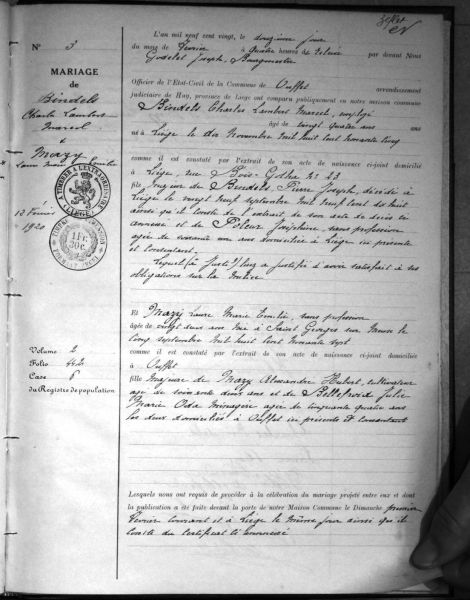 N° 3
MARIAGE
de
Bindels
Charles Lambert
Marcel
&
Mazy
Laure Marie Emilie
12 Février
1920
Volume 2
Folio 442
Case
du Registre de population
L'an mil neuf cent vingt, le douzième jour
du mois de Février à quatre heures de relevée par devant Nous
Godelet Joseph, Bourgmestre
Officier de l'Etat-Civil de la Commune de Ouffet arrondissement
judiciaire de Huy, province de Liége ont comparu publiquement en notre maison commune
Bindels Charles Lambert Marcel, employé
âgé de vingt quatre ans
né à Liège le dix Novembre mil huit cent nonante cinq
comme il est constaté par l'extrait de son acte de naissance ci-joint domicilié
à Liège, rue Bois Gotha N° 23
fils majeur de Bindels, Pierre Joseph, décédé à
Liège le vingt neuf septembre mil neuf cent dix huit
ainsi qu'il conste de l'extrait de son acte de décès ci
annexé et de Joséphine, sans profession
agée de soixante un ans domiciliée à Liège ici présente
et consentant.
Lequel a justifié d'avoir satisfait à ses
obligations sur la milice
Et Mazy Laure Marie Emilie, sans profession
âgée de vingt deux ans née à Saint Georges sur Meuse le
cinq septembre mil huit cent nonante sept
comme il est constaté par l'extrait de son acte de naissance ci-joint domiciliée
à Ouffet
fille majeure de Mazy Alexandre Hubert, cultivateur
agé de soixante deux ans et de Bellefroid Julie
Marie Oda ménagère agée de cinquante quatre ans
les deux domiciliés à Ouffet ici présents et consentant
Lesquels nous ont requis de procéder à la célébration du mariage projeté entre eux et dont
la publication a été faite devant la porte de notre Maison Commune le Dimanche premier
Février courant et à Liège le même jour ainsi qu'il
conste du certificat ci annexé